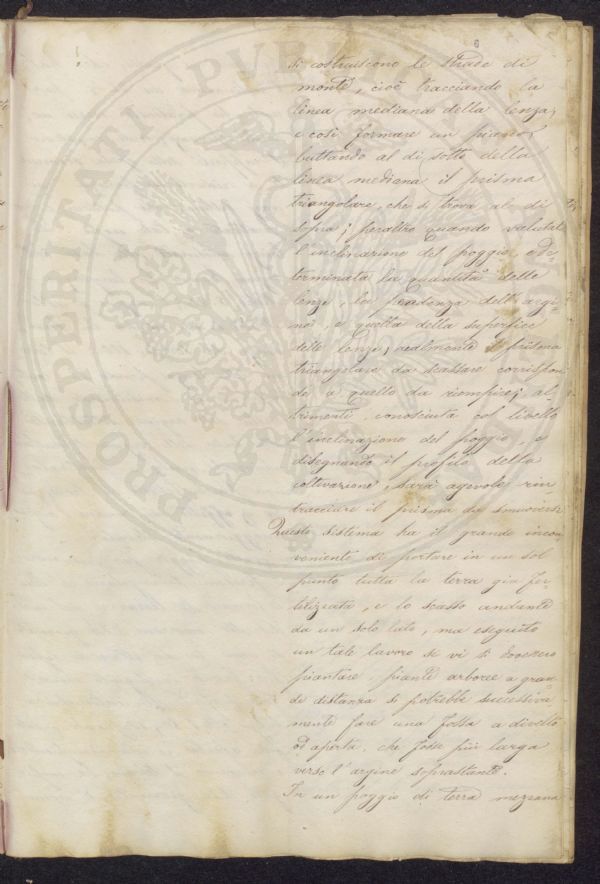 6
si costruiscono le strade di
monte, cioè tracciando la
linea mediana della lenza,
e così formare un piano,
buttando al di sotto della
linea mediana il prisma
triangolare, che si trova al di
sopra; peraltro quando valutata
l'inclinazione del poggio, de=
terminata la quantità delle
lenze, la scadenza dell'argi=
ne, e quella della superfice
delle lenze; realmente il prisma
triangolare da scassare corrispon
de a quello da riempire; al
trimenti, conosciuta col livello
l'inclinazione del poggio, e
disegnando il profilo della
coltivazione, sarà agevole rin
tracciare il prisma da smuovere
Questo sistema ha il grande incon
veniente di portare in un sol
punto tutta la terra già fer
tilizzata, e lo scasso andante
da un solo lato, ma eseguito
un tale lavoro se vi si dovessero
piantare piante arboree a gran
de distanza si potrebbe successiva
mente fare una fossa a divelto
od aperta, che fosse più larga
verso l'argine soprastante.
In un poggio di terra mezzana
PROSPERITATI PVBLICAE